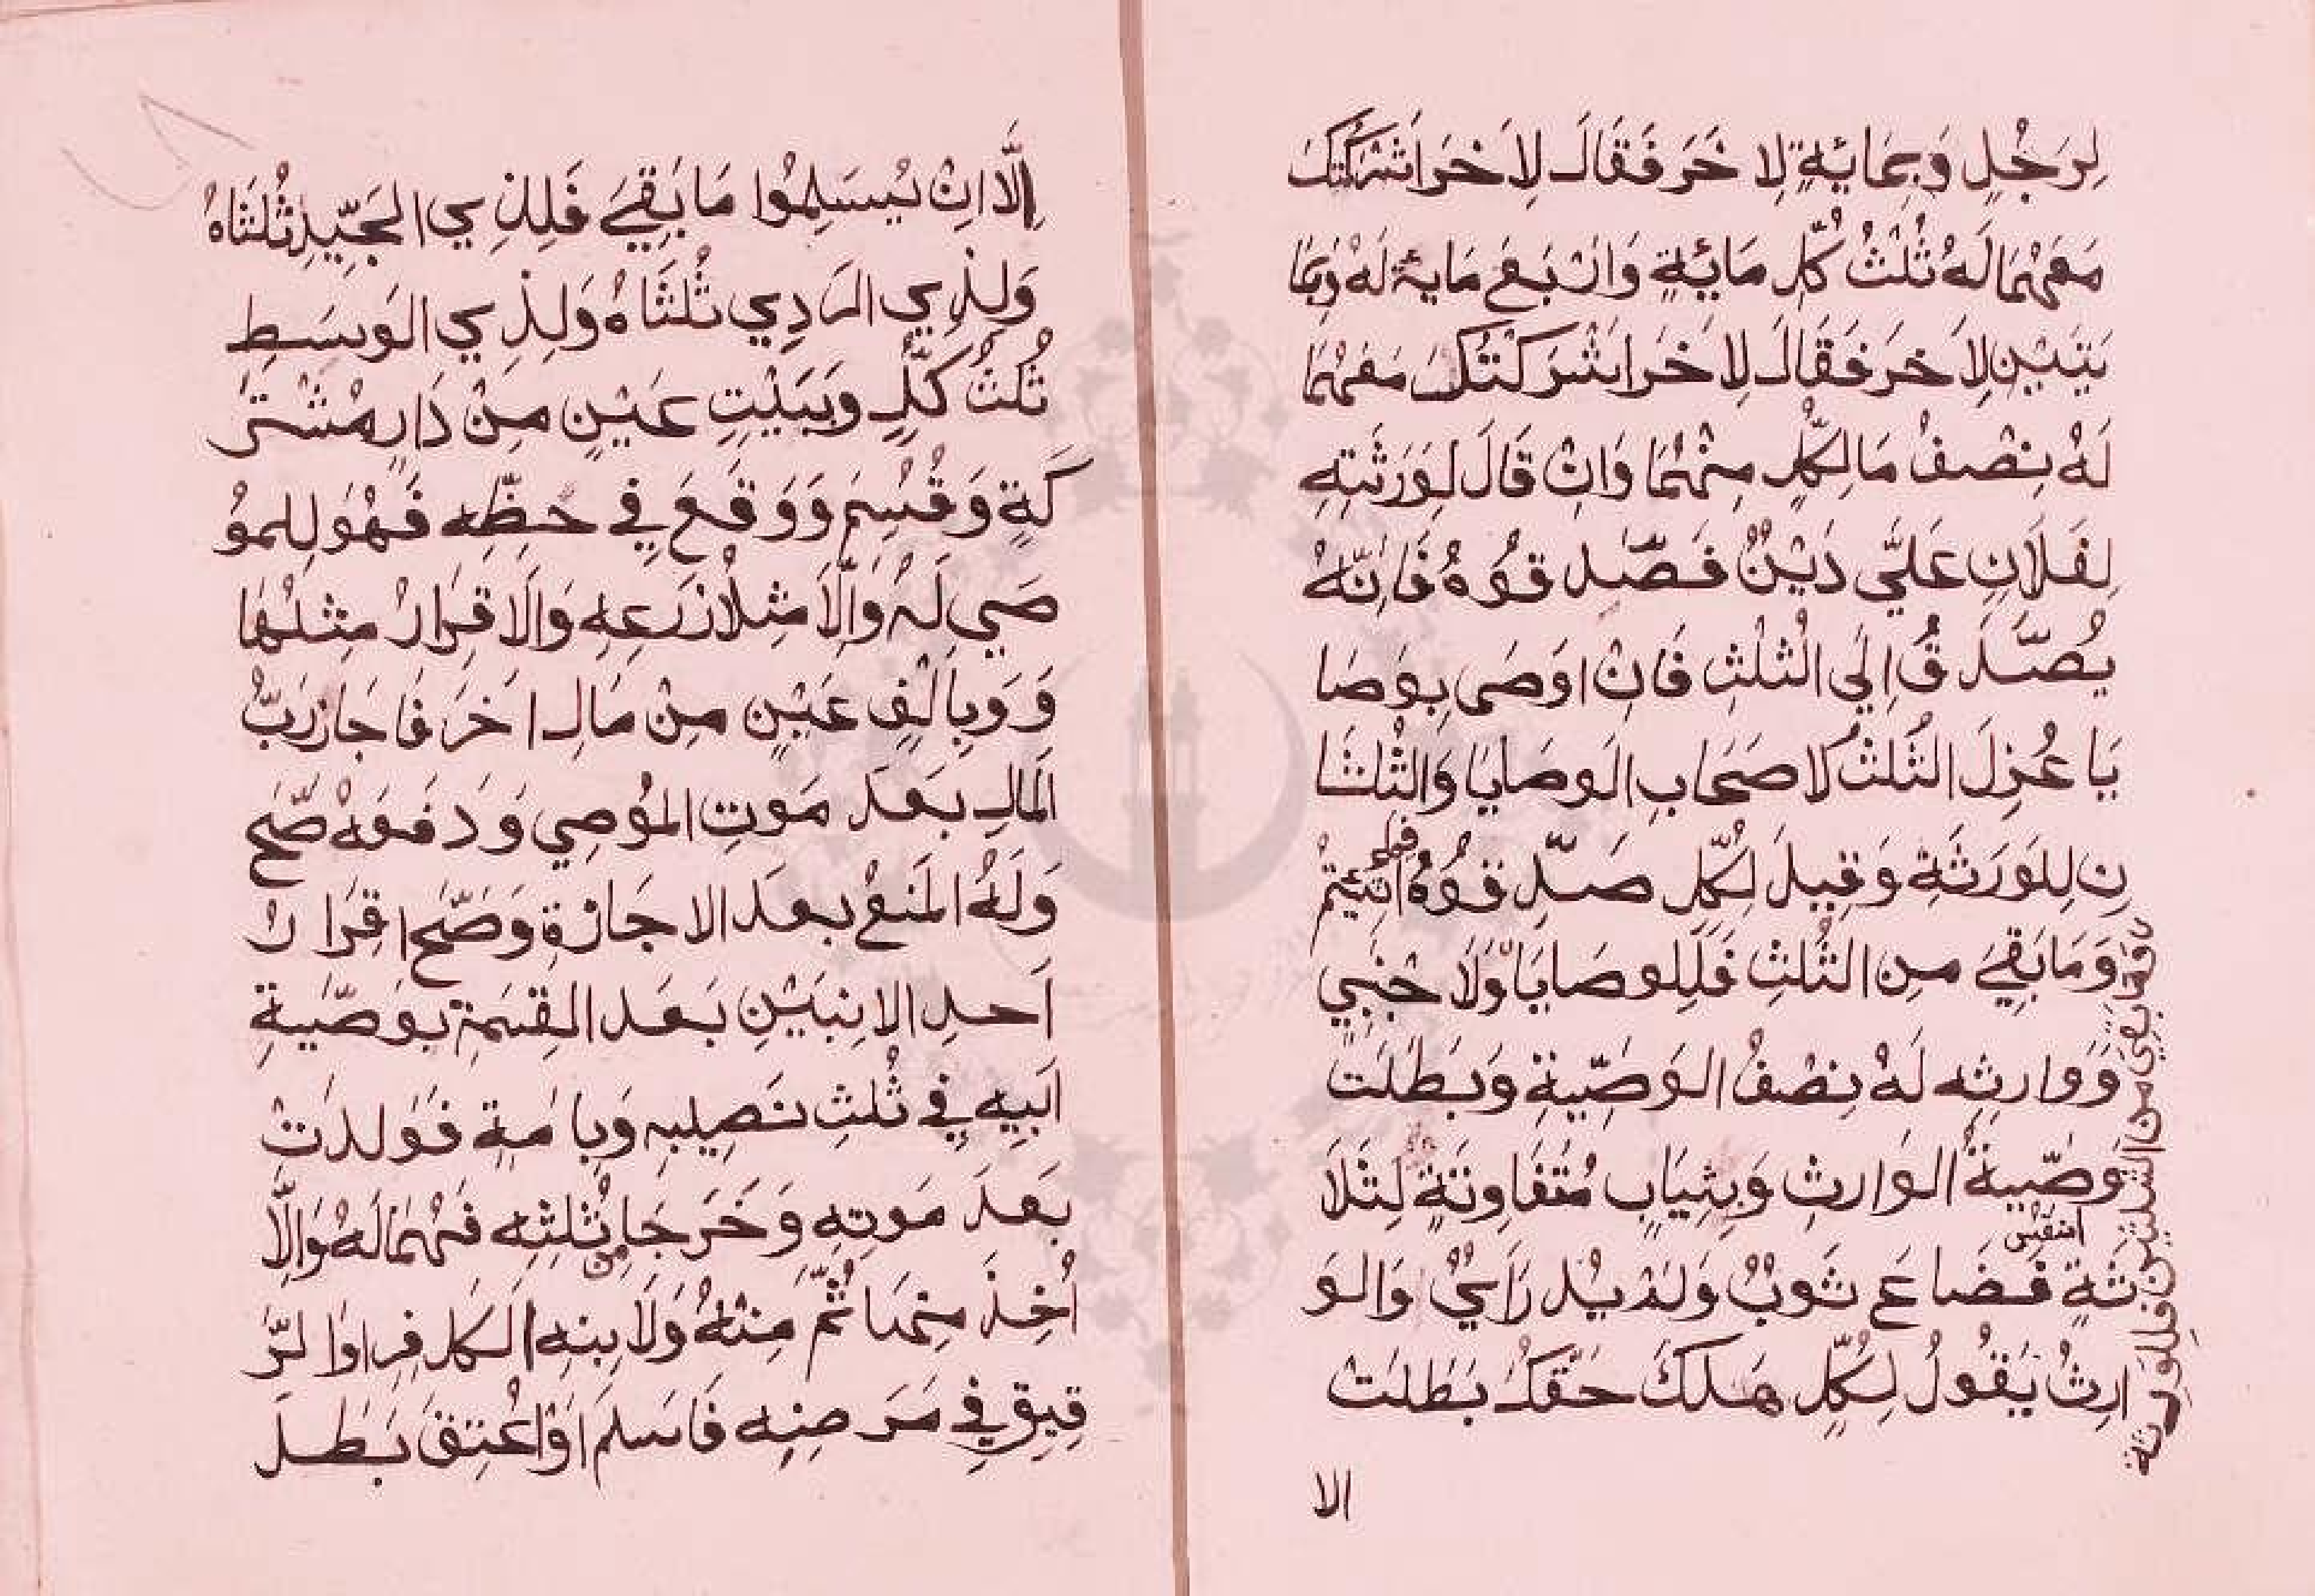 لِرَجُلٍ وَبِمَايَةٍ لِاخَرَ فَقَالَ لِاَخَرَ اَشْرَكْتُكَ
مَعَهُمَا لَهُ ثُلُثُ كُلِّ مَائِةٍ وَاَرْبَعَ مَايَةٍ لَهُ وَبِمَا
يَتَيْنِ لِاَخَرَ فَقَالَ لِاَخَرَ اَشْرَكْتُكَ مَعَهُمَا
لَهُ نِصْفُ مَا لِكُلٍّ مِنْهُمَا وَاِنْ قَالَ لِوَرَثَتِهِ
لِفَلَانٍ عَلَيَّ دَيْنٌ فَصَّدِقُوهُ فَاِنَّهُ
يُصَّدَقُ اِلَي الثُلُثِ فَاِنْ اَوصَى بِوَصَا
يَا عُزِلَ الثُلُثُ لاصَحَابِ الوصَايَا وَالثُلثَا
نِ لِلوَرَثَةِ وَقِيلَ لِكُلٍّ صَدِّقُوهُ فيما شِئتُمْ
وَمَابَقِيَ مِن الثُلثِ فَلِلوصَايَا وَلَاجْنَبِي
وَوَارِثِه لَهُ نِصْفُ الوَصِّيةِ وَبَطَلَتْ
وَصِّيةُ الوَارِثِ وَبِثِيَابٍ مُتَفَاوِتَةٍ لِثَلَا
ثَةٍ فَضَاعَ ثَوبٌ وَلَمْ يُدرَ اَيٌّ وَالوَ
ارِثُ يَقُولُ لِكُلٍّ هَلَكَ حَقُّكَ بَطَلَتْ
الا
وَمَا بَقِيَ مِن الثلثين فللورثة
اِلَّا اِنْ يُسَلِمُوا مَا بَقِيَ فَلِذِي الجَيِّدِ ثُلثَاهُ
وَلِذِي الرَدِي ثُلثَاهُ وَلِذِي الوَسَطِ
ثُلثُ كُلٍّ وَبِبَيْتٍ عَيْنٍ مِنْ دَارٍ مُشْتَرَ
كَةٍ وَقُسِمَ وَوَقَعَ فِي حَظِّه فَهُوَ لِلمُو
صَي لَهُ وَاِلَّا مِثلُ ذَرعِهِ وَالاقرَارُ مِثلُهَا
وَوَبِاَلفٍ عَيْنٍ مِنْ مَالِ اخَرَ فَاَجَازَ رَبُّ
المَالِ بَعدَ مَوتِ المُوصِي وَدَفَعَهُ صَّحَ
وَلَهُ المَنعُ بَعدَ الاجَازَةِ وَصَّحَ اِقرَارُ
اَحدِ الابنَيْنِ بَعدَ القِسمَةِ بوَصِّيةِ
اَبِيهِ فِي ثُلثِ نَصِيبِهِ وَبِاَمَةٍ فَوَلدَتْ
بَعدَ مَوتِهِ وَخَرَجَا مِن ثُلثِهِ فَهُمَا لَهُ وَاِلَّا
اُخِذَ مِنهَا ثُمَّ مِنْهُ وَلَابنِهِ الكَافِرِ اوِ الرَّ
قِيقِ فِي مَرَضِهِ فَاَسلَمَ اَوْ اُعْتِقَ بَطَلَ